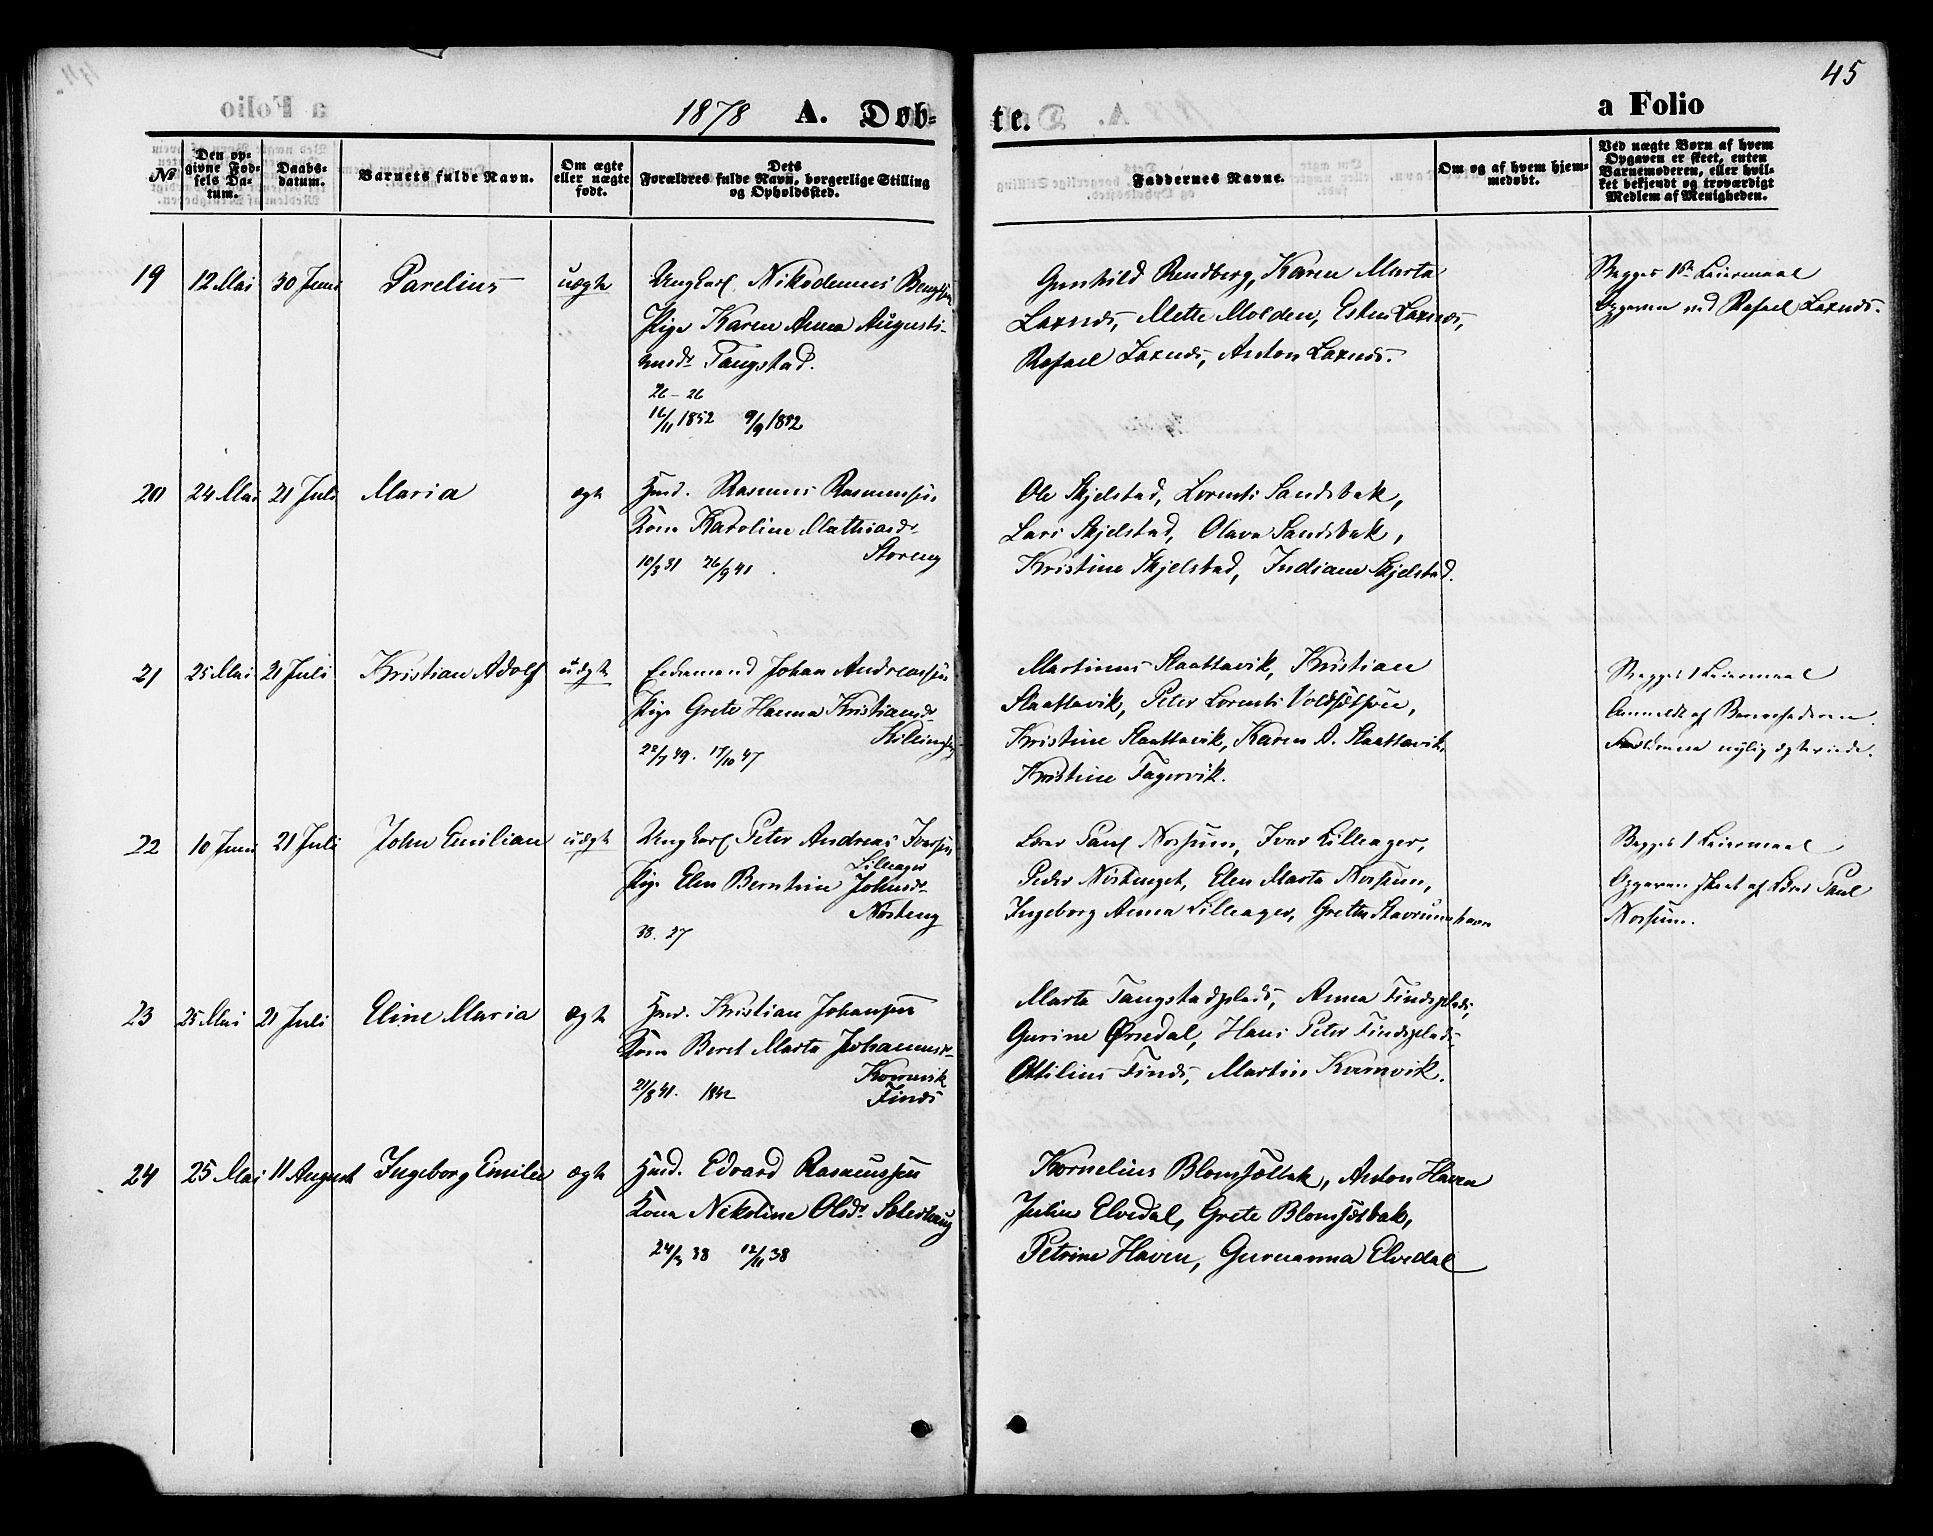 45
1878 A. Døb-
te.
a Folio
№
Den op-
givne Fød-
sels Da-
tum.
Daabs-
datum.
Barnets fulde Navn.
Om ægte
eller uægte
født.
Dets
Forældres fulde Navn, borgerlige Stilling
og Opholdssted.
Faddernes Navne.
Om og af hvem hjem-
medøbt.
Ved uægte Børn af hvem
Opgaven er skeet, enten
Barnemoderen, eller hvil-
ket bekjendt og troværdigt
Medlem af Menigheden.
19 12 Mai 30 Juni Parelius uægte
Ungkarl Nikodemus
Pige Karen Anna Augusti-
nusdr Tangstad.
26 - 26
16/11 1852 9/9 1852
Gunhild Rendberg, Karen Marta
Laxnes, Mette Molden, Esten Laxnes,
Rafael Laxnes, Anton Laxnes.
Begges 1ste Leiermaal
Opgaven ved Rafael Laxnes.
20 24 Mai 21 Juli Maria ægte
Hmd. Rasmus Rasmussen
Kone Karoline Mathiasdr
Storeng
10/3 31 26/9 41
Ole Skjelstad, Lorents Sandsbak,
Lars Skjelstad, Olava Sandsbak,
Kristine Skjelstad, Indiane Skjelstad.
21 25 Mai 21 Juli Kristian Adolf uægte
Enkemand Johan Andreassen
Pige Grete Hanna Kristiansdr
22/7 49. 17/10 47
Martinus Slaattavik, Kristian
Slaattavik, Peter Lorents
Kristine Slaattavik, Karen A. Slaattavik,
Kristine Fagervik.
Begges 1 Leiermaal
Anmeldt af Barnefaderen
Forældrene nylig ægteviede.
22 10 Juni 21 Juli John Emilian uægte
Ungkarl Peter Andreas Iversen
Lilleager
Pige Elen Berntine Johnsdr
Nøsteng
33. 27
Lærer Paul Norsum, Ivar Lilleager,
Peder Nøstenget, Elen Marta Norsum,
Ingeborg Anna Lilleager, Grethe
Begges 1 Leiermaal
Opgaven skeet af Lærer Paul
Norsum.
23 25 Mai 21 Juli Eline Maria ægte
Hmd. Kristian Johansen
Kone Beret Marta Johannesdr
Kornvik
Finds
21/8 41. 1842
Marta Tangstadplads, Anna Findsplads,
Gurine Ørsedal, Hans Peter Findsplads
Ottilius Finds, Martin Kornvik.
24 25 Mai 11 August Ingeborg Emilie ægte
Hmd. Edvard Rasmussen
Kone Nikoline Olsdr
24/3 38 12/11 38
Kornelius Blomsøtbak, Anton Haven
Julius Elvedal, Grete Blomsøtbak,
Petrine Haven, Guruanna Elvedal